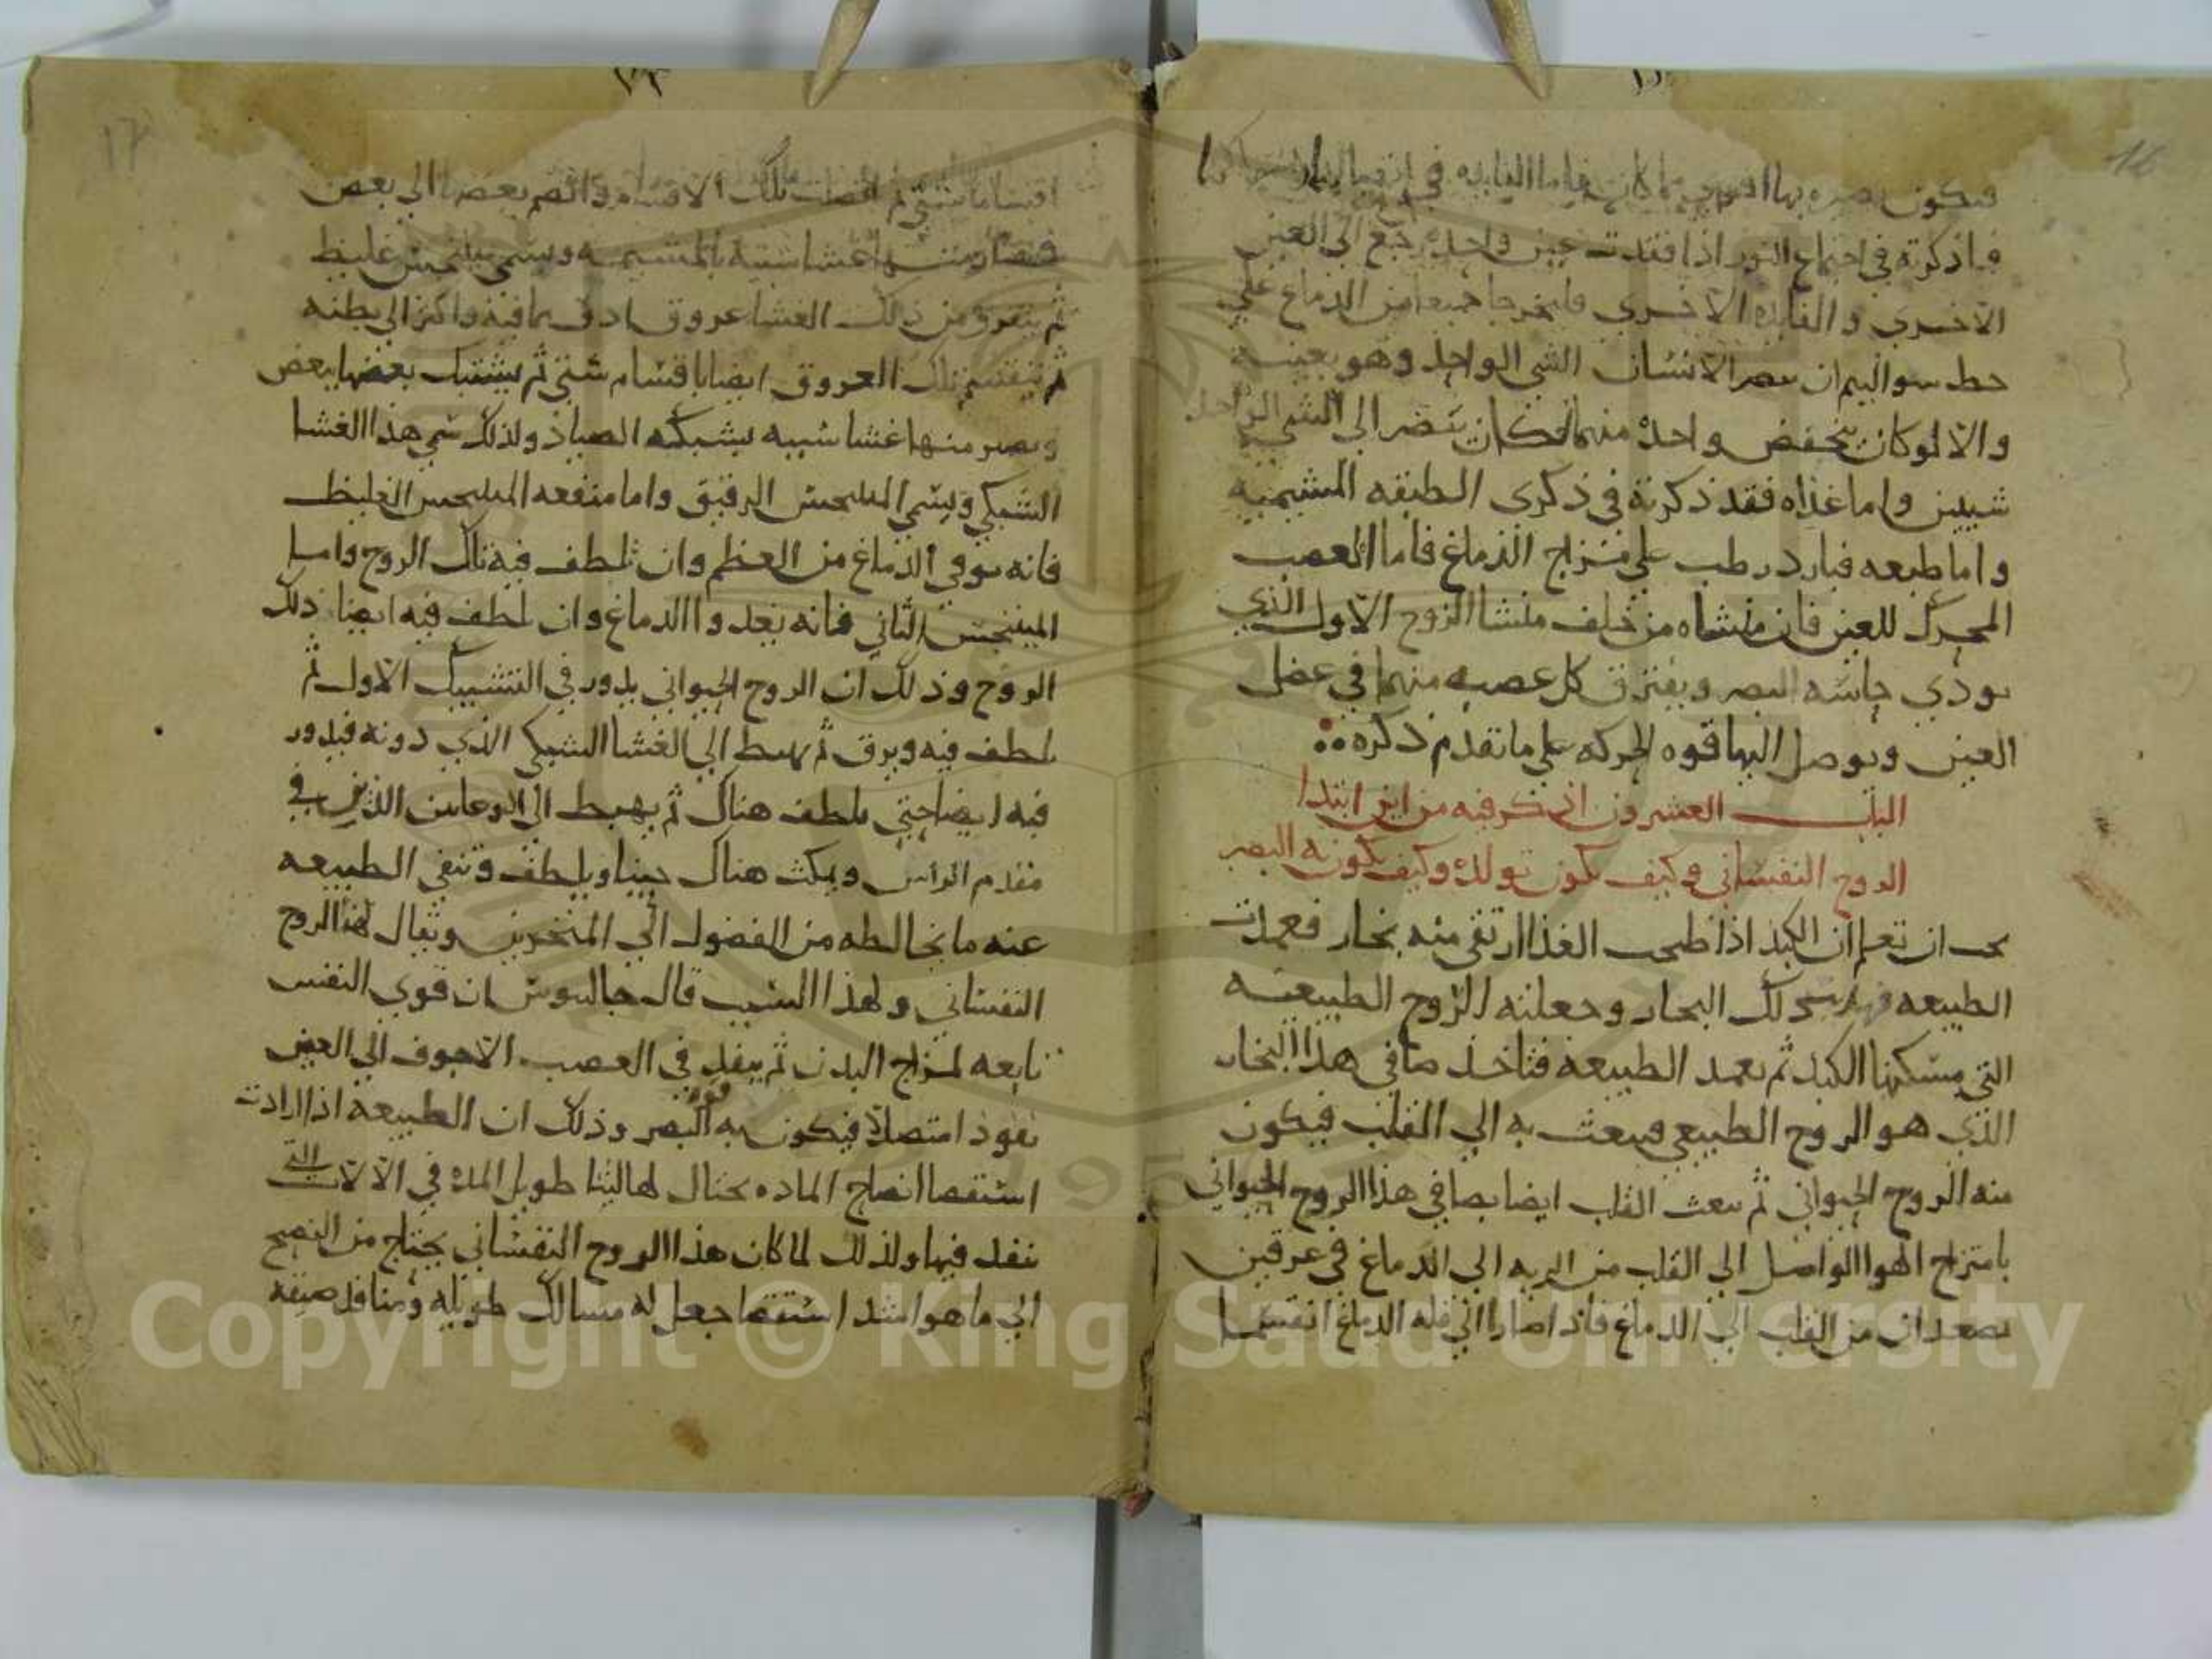 فيكون بصره بها اقوى مما كان فاما الفايده في
ما ذكرته في اجتماع النور اذا فقدت عين واحده رجع الى العين
الاخرى والفايده الاخرى فانخرجا جميعا من الدماغ على
خط سوا ليم ان بصر الانسان الشي الواحد وهو بعينه
والا لو كان ينخفض واحدة منهما لكان يبصر الى الشي الواحد
شيين واما غذاه فقد ذكرته في ذكرى الطبقه المشيميه
واما طبعه فبارد رطب على مزاج الدماغ فاما العصب
المحرك للعين فان منشاه من خلف منشا الزوج الاول الذي
يودي حاسه البصر ويفترق كل عصبه منهما في عضل
العين ويوصل اليها قوه الحركه على ما تقدم ذكره
الباب العشرون اذكر فيه من اين ابتدا
الروح النفساني وكيف يكون تولده وكيف يكون به البصر
يجب ان تعلم ان الكبد اذا طبخت الغذا ارتقى منه بخار فعمدت
الطبيعه ذلك البخار وجعلته الروح الطبيعيه
التي مسكنها الكبد ثم تعمد الطبيعه فتاخذ صافي هذا البخار
الذي هو الروح الطبيعي فيبعث به الي القلب فيكون
منه الروح الحيواني ثم يبعث القلب ايضا بصافي هذا الروح الحيواني
بامتزاج الهوا الواصل الي القلب من الريه الى الدماغ في عرقين
يصعدان من القلب الي الدماغ فاذا صارا الي قله الدماغ انقسما
اقساما شتي ثم اتصلت تلك الاقسام وانضم بعضها الي بعض
فصار منها غشا شبيه بالمشيمه ويسمى مننجس غليظ
ثم يتفرق من ذلك الغشا عروق ادق مما فيه واكثر الي بطنه
ثم تنقسم تلك العروق ايضا باقسام شتى ثم يشتبك بعضها ببعض
ويصير منها غشا شبيه بشبكه الصياد ولذلك سمي هذا الغشا
الشبكي ويسمي المننجس الرقيق واما منفعه المننجس الغليظ
فانه يوقي الدماغ من العظم وان تلطف فيه تلك الروح واما
المننجس الثاني فانه يغدوا الدماغ وان لطف فيه ايضا ذلك
الروح وذلك ان الروح الحيواني يدور في التشبيك الاول ثم
يلطف فيه ويرق ثم يهبط الي الغشا الشبكي الذي دونه فيدور
فيه ايضا حتى يلطف هناك ثم يهبط الى الوعاين الذين في
مقدم الراس ويمكث هناك حينا ويلطف وتنفي الطبيعه
عنه ما يخالطه من الفضول الي المنخرين ويقال لهذا الروح
النفساني ولهذا السبب قال جالينوس ان قوى النفس
تابعه لمزاج البدن ثم ينفد في العصب الاجوف الي العين
نفوذا متصلا فيكون به البصر وذلك ان الطبيعه اذا ارادت
استقصا انضاج الماده يحتال لها لبثا طويل المده في الالات التي
تنفد فيها ولذلك لما كان هذا الروح النفساني يحتاج من النضج
الي ما هو اشد استقصا جعل له مسالك طويله ومنافد ضيقه
16
17
Copyright © King Saud University